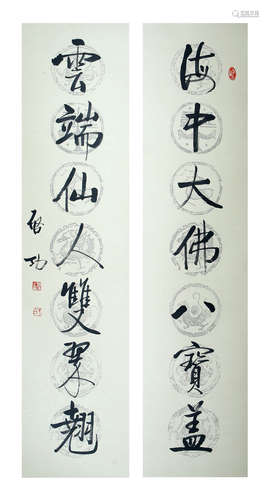 海中大佛八寶蓋
雲端仙人雙翠翹
啟功